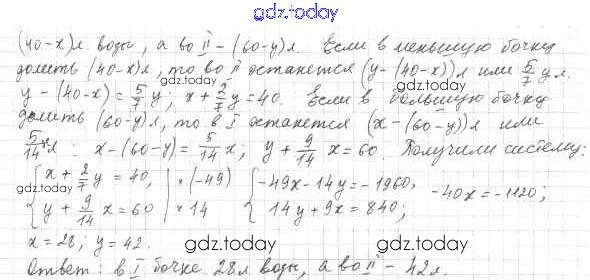 gdz.today
(40-x)л. воды, а во II - (60-y)л. Если в меньшую бочку
долить (40-x)л, то во II останется (y-(40-x))л или 5/7 y л.
gdz.today gdz.today
y-(40-x) = 5/7 y; x + 2/7 y = 40. Если в большую бочку
долить (60-y)л, то в I останется (x-(60-y))л или
gdz.today
5/14 x л: x-(60-y) = 5/14 x; y + 9/14 x = 60. Получили систему:
{ x + 2/7 y = 40, | × (-49) { -49x - 14y = -1960, -40x = -1120;
gdz.today gdz.today
y + 9/14 x = 60 | × 14 14y + 9x = 840;
x = 28; y = 42.
gdz.today
Ответ: в I бочке 28л воды, а во II - 42л.
gdz.today